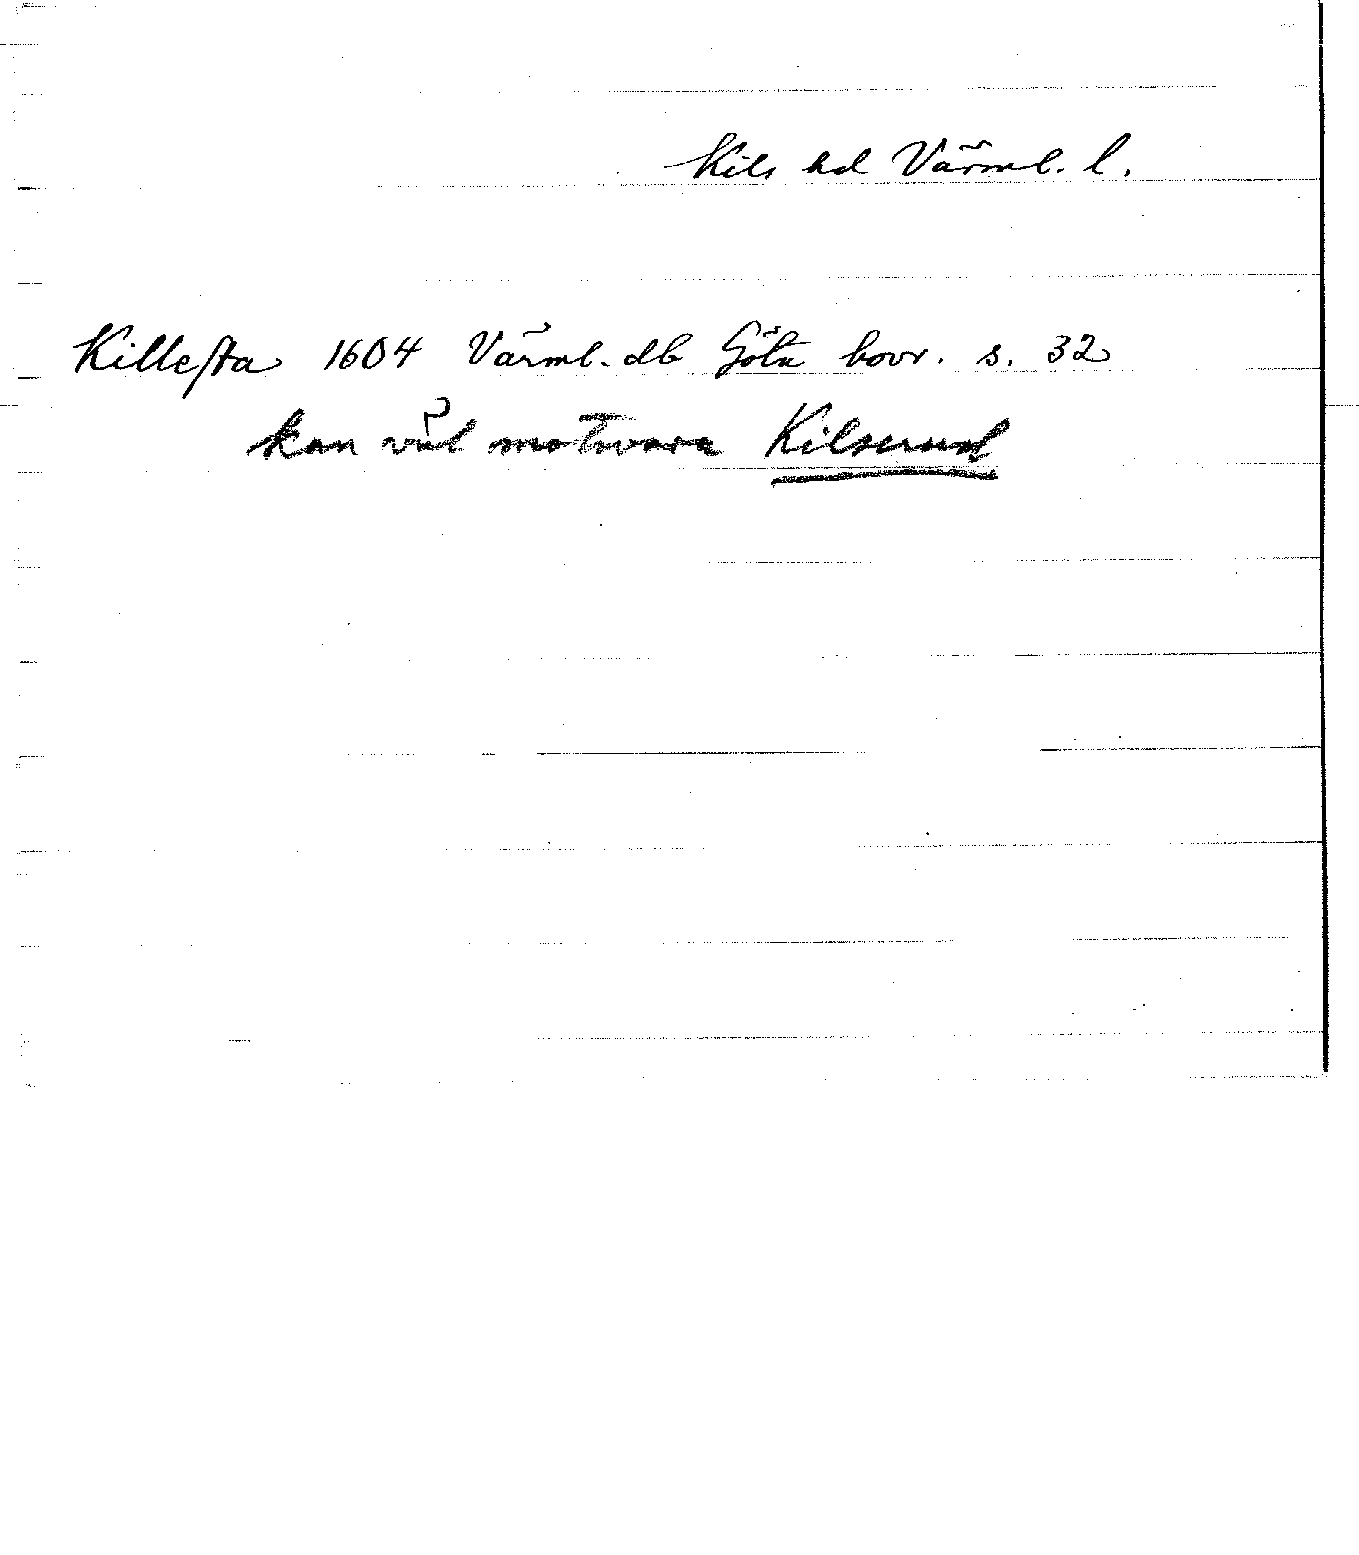 Kils hd Värml. l.
Killesta 1604 Värml. db Göta hovr. s. 32
kan väl motsvara Kilserud